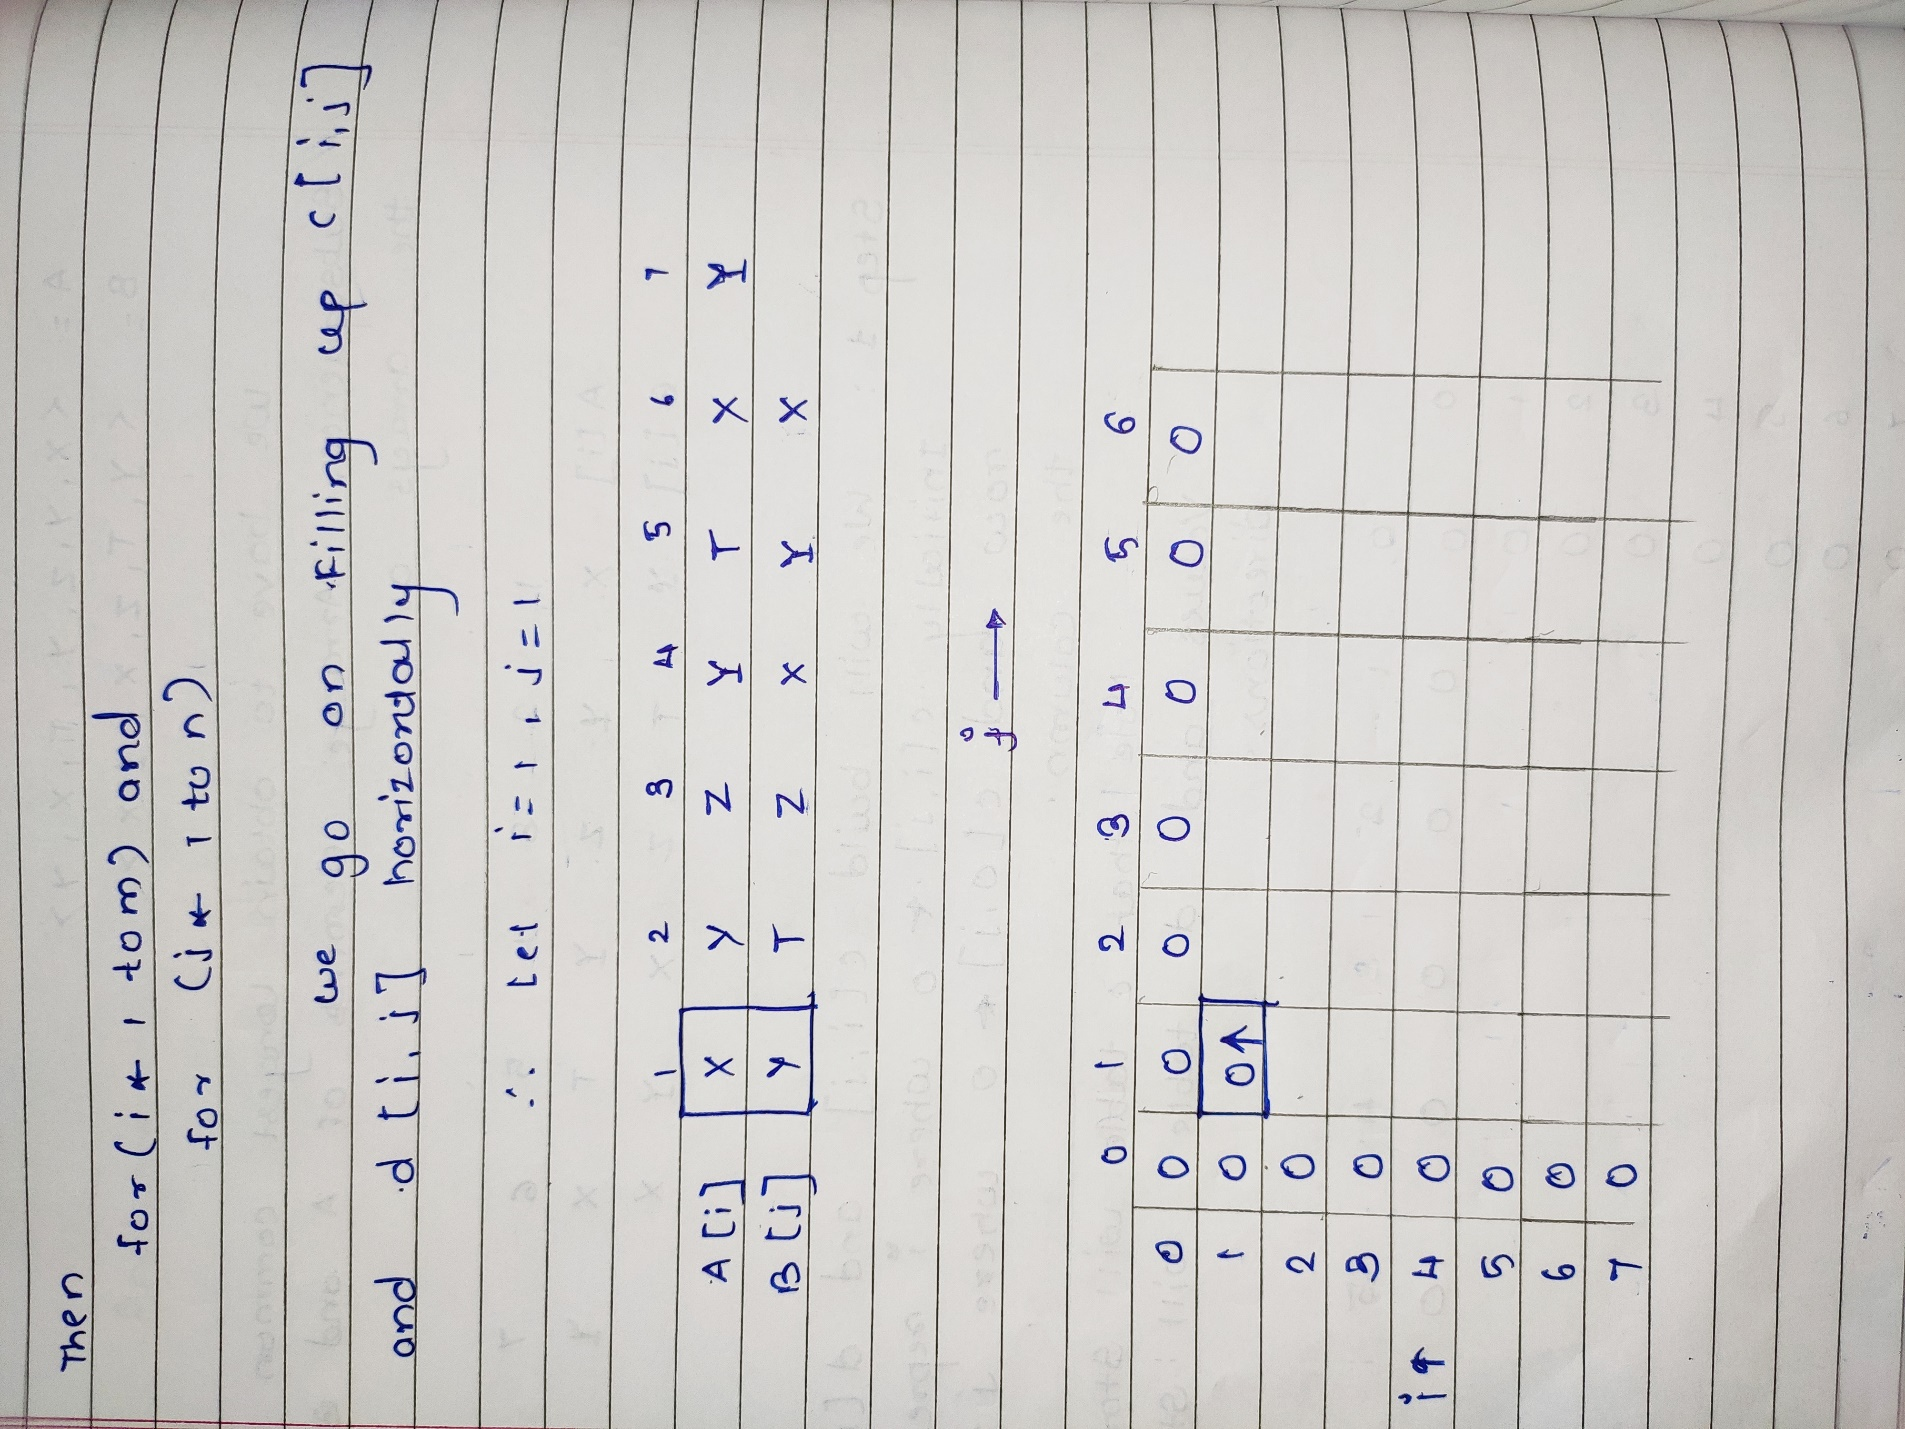 Then
for (i ← 1 to m) and
for (j ← 1 to n)
we go on filling up c[i,j]
and d[i,j] horizontally
∴ Let i=1, j=1
1 2 3 4 5 6 7
A[i] X Y Z Y T X Y
B[j] Y T Z X Y X
j →
0 1 2 3 4 5 6
0 0 0 0 0 0 0 0
1 0 0↑
2 0
3 0
i↑ 4 0
5 0
6 0
7 0